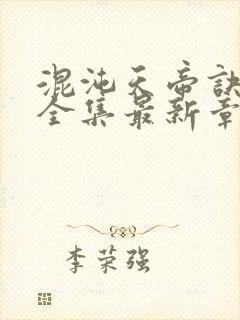 混沌天帝訣
全集最新章
李荣强